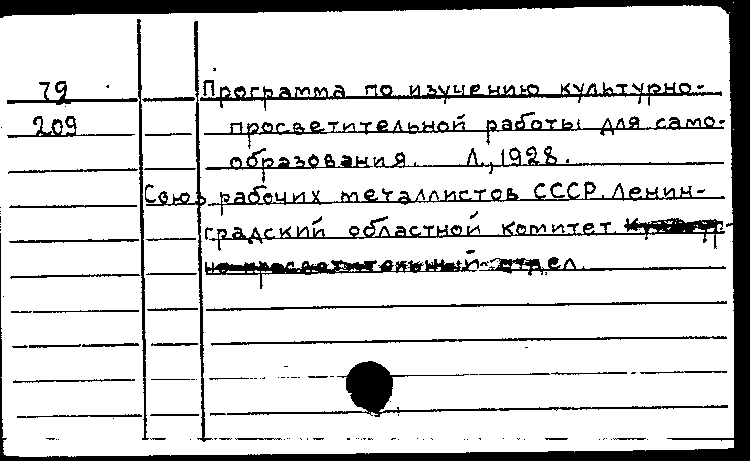 79 Программа по изучению культурно-
209 просветительной работы для само-
образования. Л., 1928.
Союз рабочих металлистов СССР. Ленин-
градский областной комитет. Культур-
но-просветительный отдел.